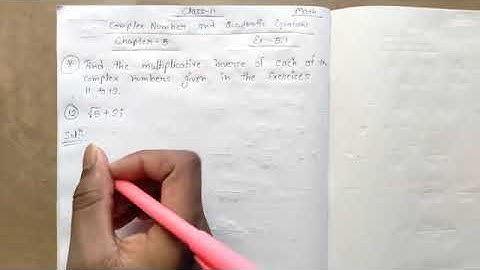 Class-11 Math
Complex Number and Quadratic Equations
Chapter-5 Ex-5.1
Find the multiplicative inverse of each of the
complex numbers given in the Exercises
11 to 13.
12 √5+3i
Solⁿ